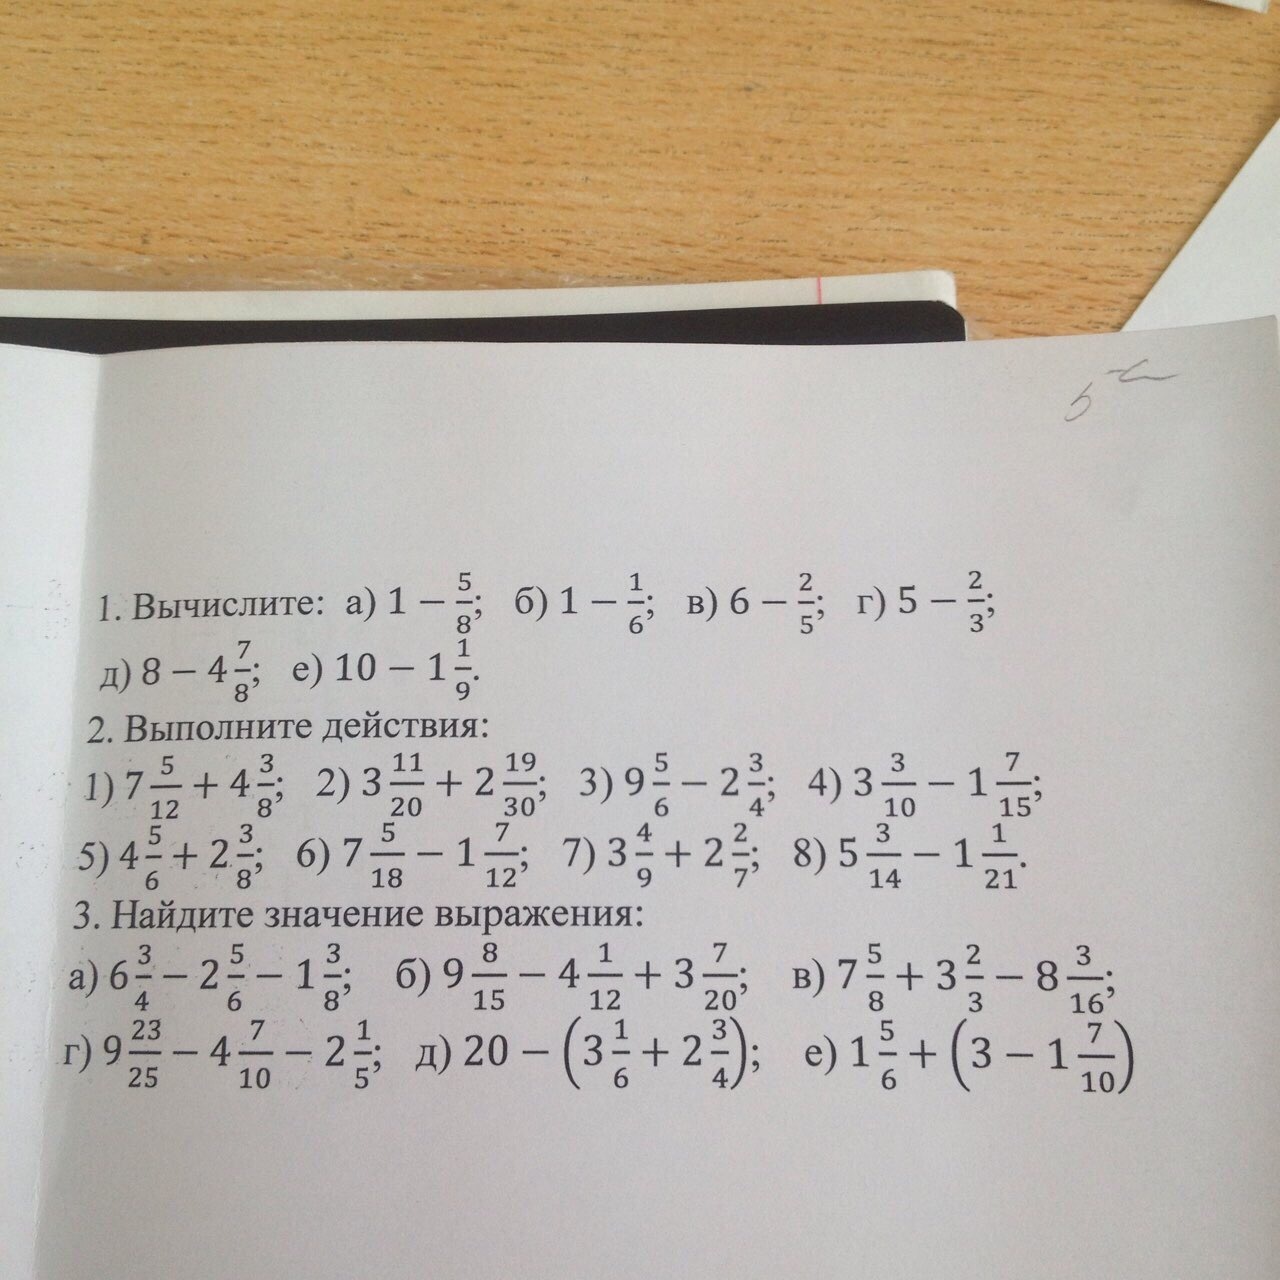 1. Вычислите: а) 1 − 5/8; б) 1 − 1/6; в) 6 − 2/5; г) 5 − 2/3;
д) 8 − 4 7/8; е) 10 − 1 1/9.
2. Выполните действия:
1) 7 5/12 + 4 3/8; 2) 3 11/20 + 2 19/30; 3) 9 5/6 − 2 3/4; 4) 3 3/10 − 1 7/15;
5) 4 5/6 + 2 3/8; 6) 7 5/18 − 1 7/12; 7) 3 4/9 + 2 2/7; 8) 5 3/14 − 1 1/21.
3. Найдите значение выражения:
а) 6 3/4 − 2 5/6 − 1 3/8; б) 9 8/15 − 4 1/12 + 3 7/20; в) 7 5/8 + 3 2/3 − 8 3/16;
г) 9 23/25 − 4 7/10 − 2 1/5; д) 20 − (3 1/6 + 2 3/4); е) 1 5/6 + (3 − 1 7/10)